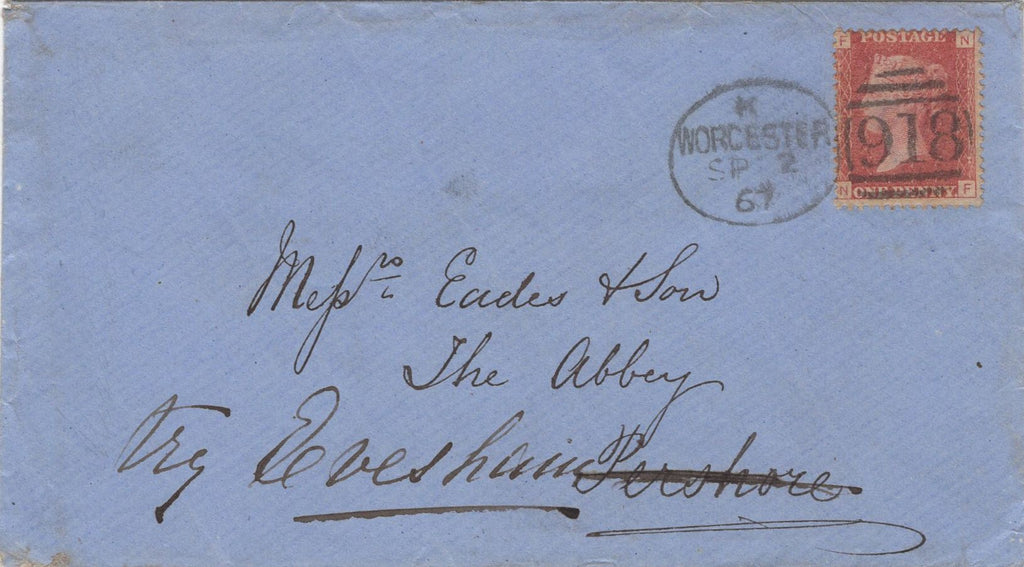 F POSTAGE N
K
WORCESTER
SP 2
67
918
N ONE PENNY F
Messrs Eades & Son
The Abbey
try Evesham Pershore